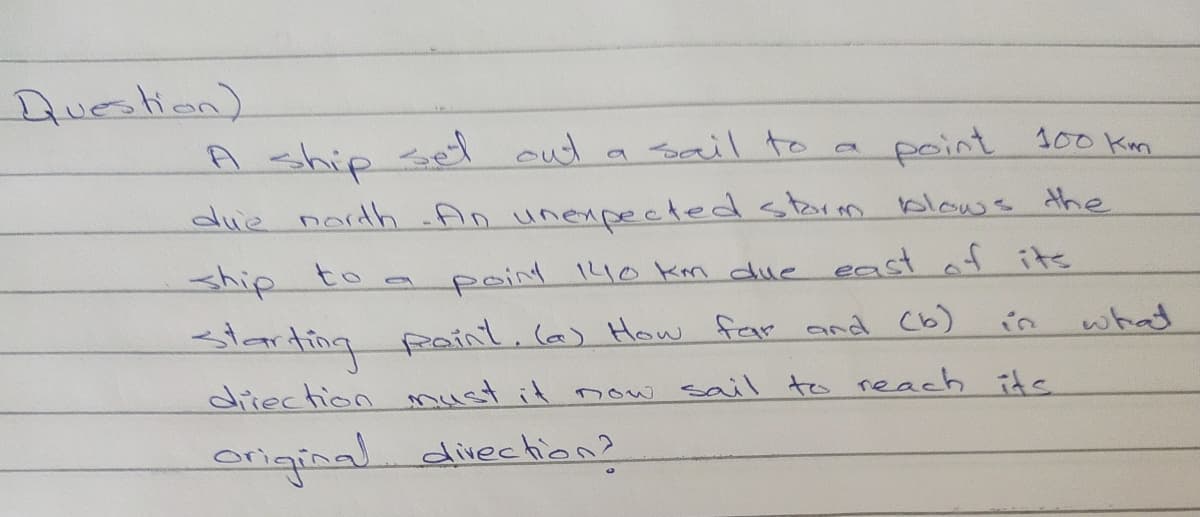 Question)
A ship set out a sail to a point 100 km
due north - An unexpected storm blows the
ship to a point 140 km due east of its
starting point. (a) How far and (b) in what
direction must it now sail to reach its
original direction?